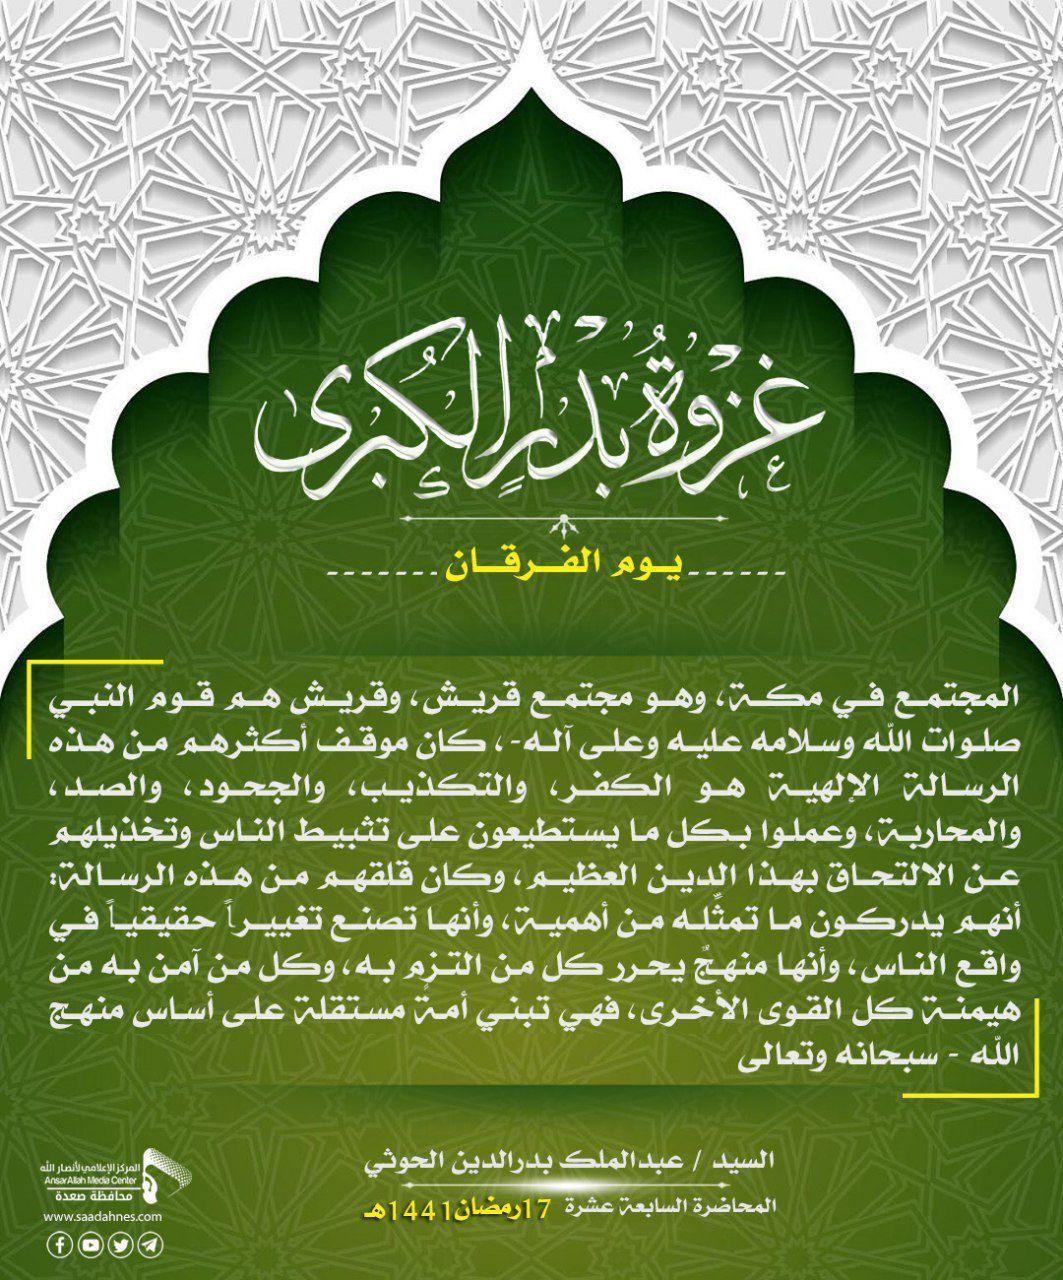 غَزْوَةُ بَدْرٍ الكُبرى
يوم الفرقان
المجتمع في مكة، وهو مجتمع قريش، وقريش هم قوم النبي
صلوات الله وسلامه عليه وعلى آله-، كان موقف أكثرهم من هذه
الرسالة الإلهية هو الكفر، والتكذيب، والجحود، والصد،
والمحاربة، وعملوا بكل ما يستطيعون على تثبيط الناس وتخذيلهم
عن الالتحاق بهذا الدين العظيم، وكان قلقهم من هذه الرسالة:
أنهم يدركون ما تمثِّله من أهمية، وأنها تصنع تغييراً حقيقياً في
واقع الناس، وأنها منهجٌ يحرر كل من التزم به، وكل من آمن به من
هيمنة كل القوى الأخرى، فهي تبني أمةً مستقلة على أساس منهج
الله - سبحانه وتعالى
السيد / عبدالملك بدرالدين الحوثي
المحاضرة السابعة عشرة 17رمضان1441هـ
المركز الإعلامي لأنصار الله
AnsarAllah Media Center
محافظة صعدة
www.saadahnes.com